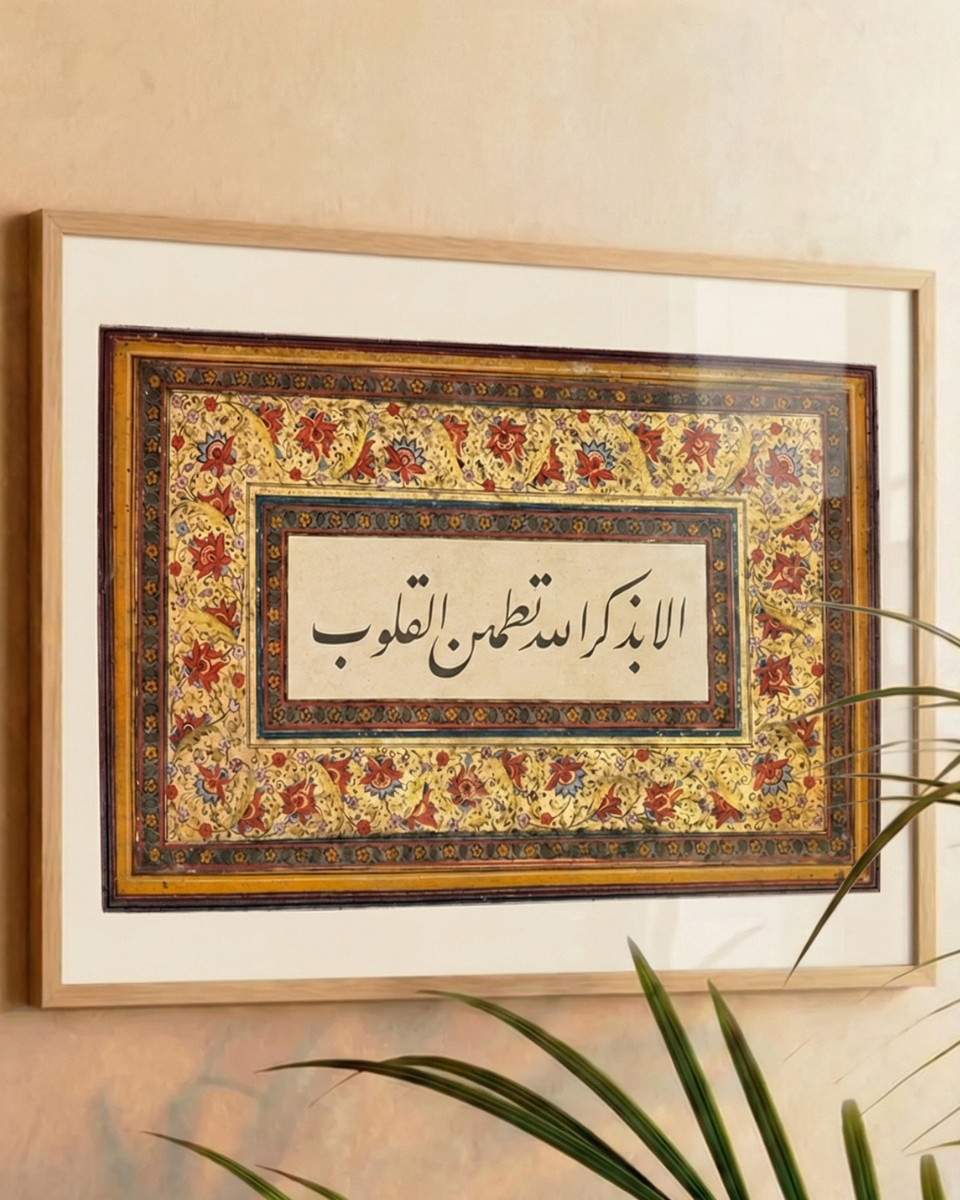 الا بذکر الله تطمئن القلوب